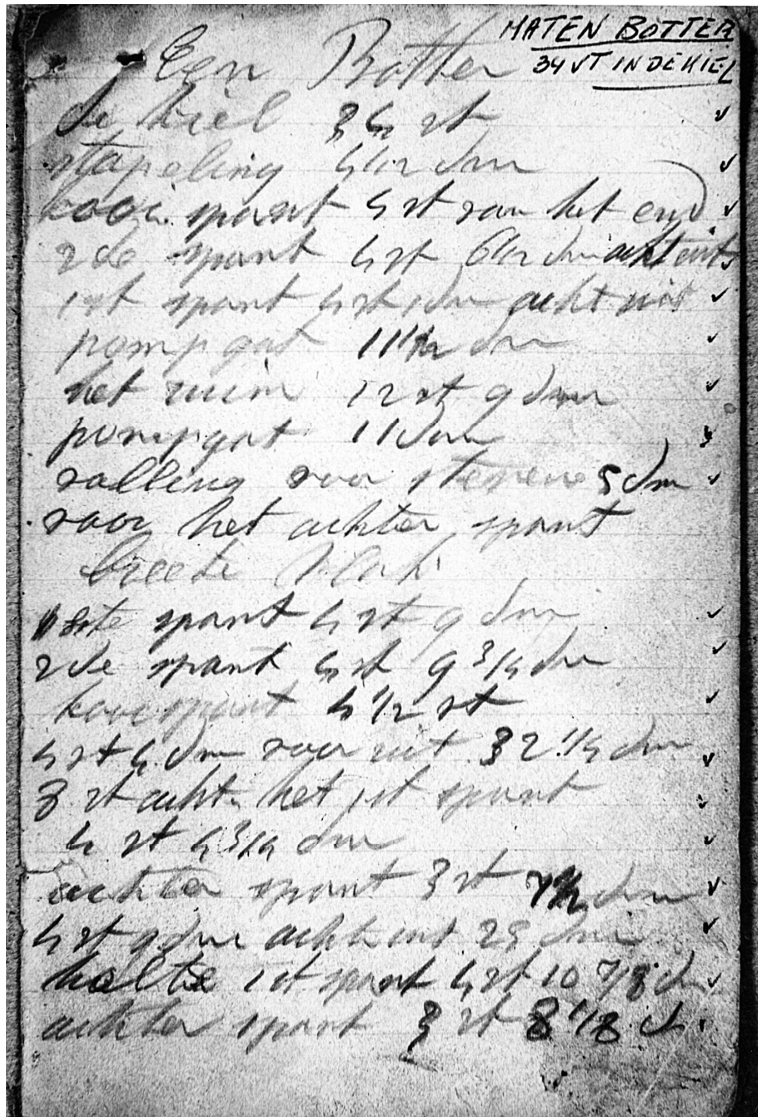 MATEN BOTTER
34 VT IN DE KIEL
Een Botter
de kiel 34 vt
stapeling 4 1/2 dm
kooi spant 4 vt van het end
2de spant 4 vt 6 1/2 dm acht uit
1st spant 4 vt 1 dm acht uit
pomp gat 11 1/2 dm
het ruim 12 vt 9 dm
pompgat 11 dm
valling voor steven 5 dm
voor het achter spant
breete vlak
1ste spant 4 vt 9 dm
2de spant 4 vt 9 3/4 dm
kooi spant 4 1/2 vt
4 vt 4 dm voor uit 32 1/4 dm
3 vt acht het 1st spant
4 vt 4 3/4 dm
achter spant 3 vt dm
4 vt 9 dm acht uit 25 dm
holte 1st spant 4 vt 10 7/8 d
achter spant 3 vt 8 1/8 d